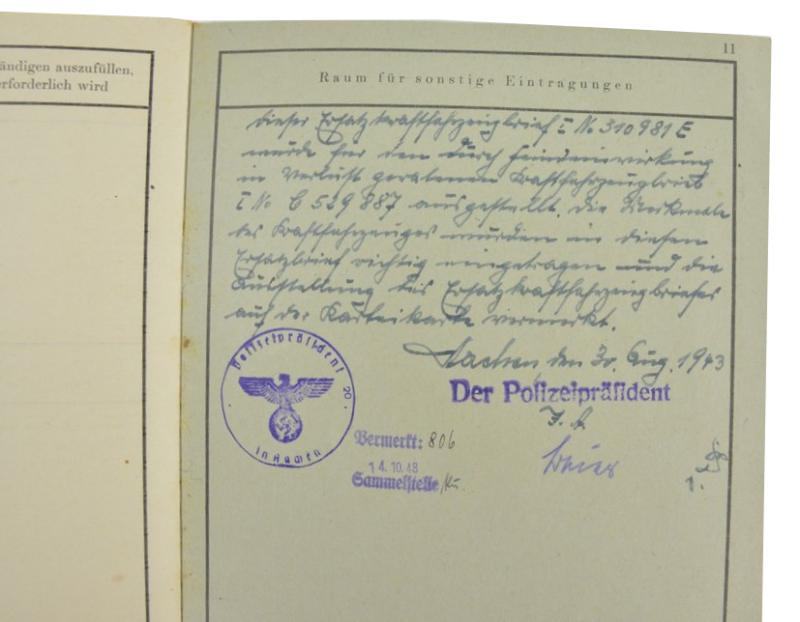 ändigen auszufüllen,
erforderlich wird
11
Raum für sonstige Eintragungen
Dieser Ersatzkraftfahrzeugbrief I No 310981 E
wurde für den durch Feindeinwirkung
in Verlust geratenen Kraftfahrzeugbrief
I No C 529887 ausgestellt. Die Merkmale
des Kraftfahrzeuges wurden in diesen
Ersatzbrief richtig eingetragen und die
Ausstellung des Ersatzkraftfahrzeugbriefes
auf der Karteikarte vermerkt.
Aachen den 30. Aug. 1943
Der Polizeipräsident
I. A
Polizeipräsident
20
in Aachen
Vermerkt: 806
14.10.43
Sammelstelle